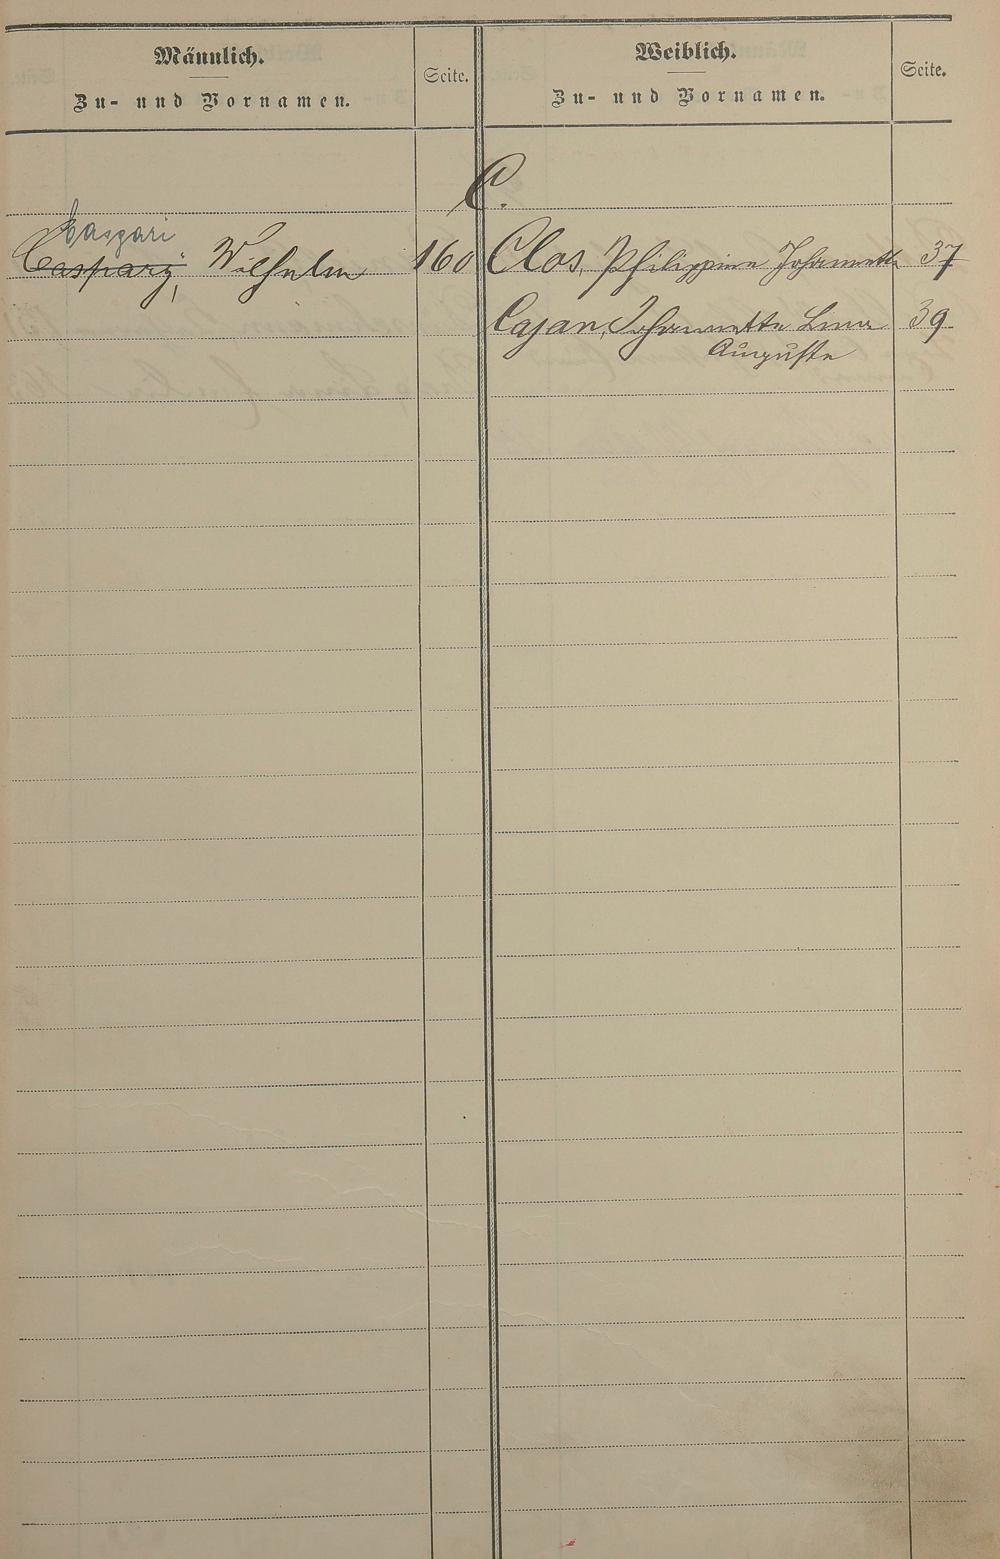 Männlich.
Zu- und Vornamen.
Seite.
Weiblich.
Zu- und Vornamen.
Seite.
C.
Caspari
Caspary, Wilhelm 160
Clos, Philippine Johannette 37
Cajan, Johannette Lina 39
Auguste